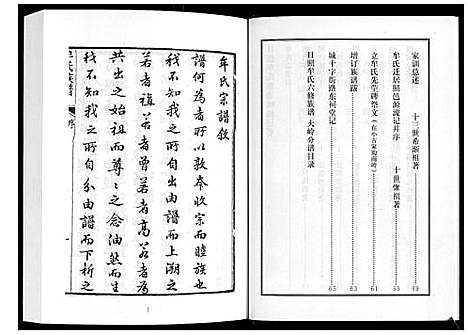 家训总述……十三世希澥祖著……49
牟氏迁居照邑源流记并序……十世儆祖著……55
立牟氏先茔碑祭文（在小古家沟南岭）……61
增订族谱跋……63
城十字街路东祠堂记……65
日照牟氏六修族谱大岭分谱目录
牟氏宗譜敘
譜何為者所以敦本收宗而睦族也
我不知我之所自出由譜而上溯之
若者禎若者曾若者高若者為
共出之始祖而尊之之念油然而生
我不知我之所自分由譜而下析之
牟氏族譜
序
1